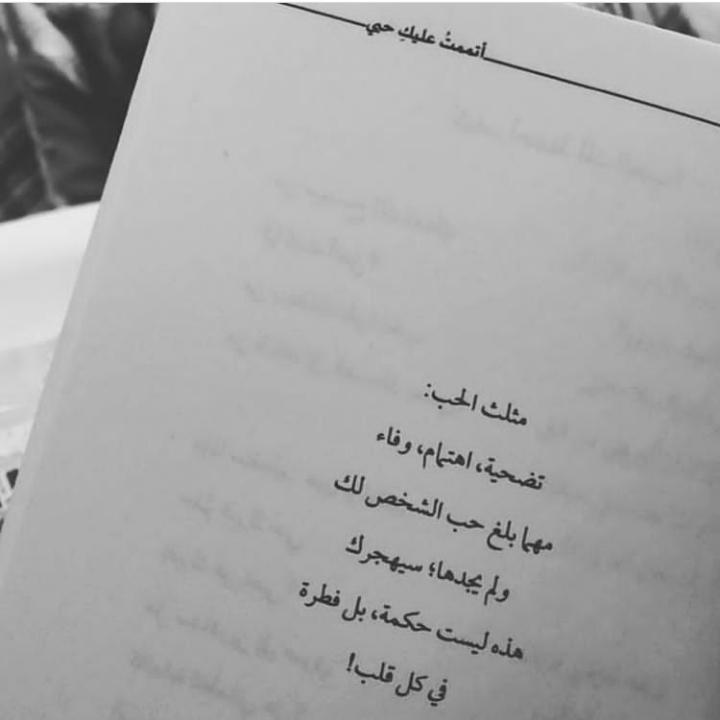 أتممتُ عليكِ حبي
مثلث الحب:
تضحية، اهتمام، وفاء
مهما بلغ حب الشخص لك
ولم يجدها؛ سيهجرك
هذه ليست حكمة، بل فطرة
في كل قلب!